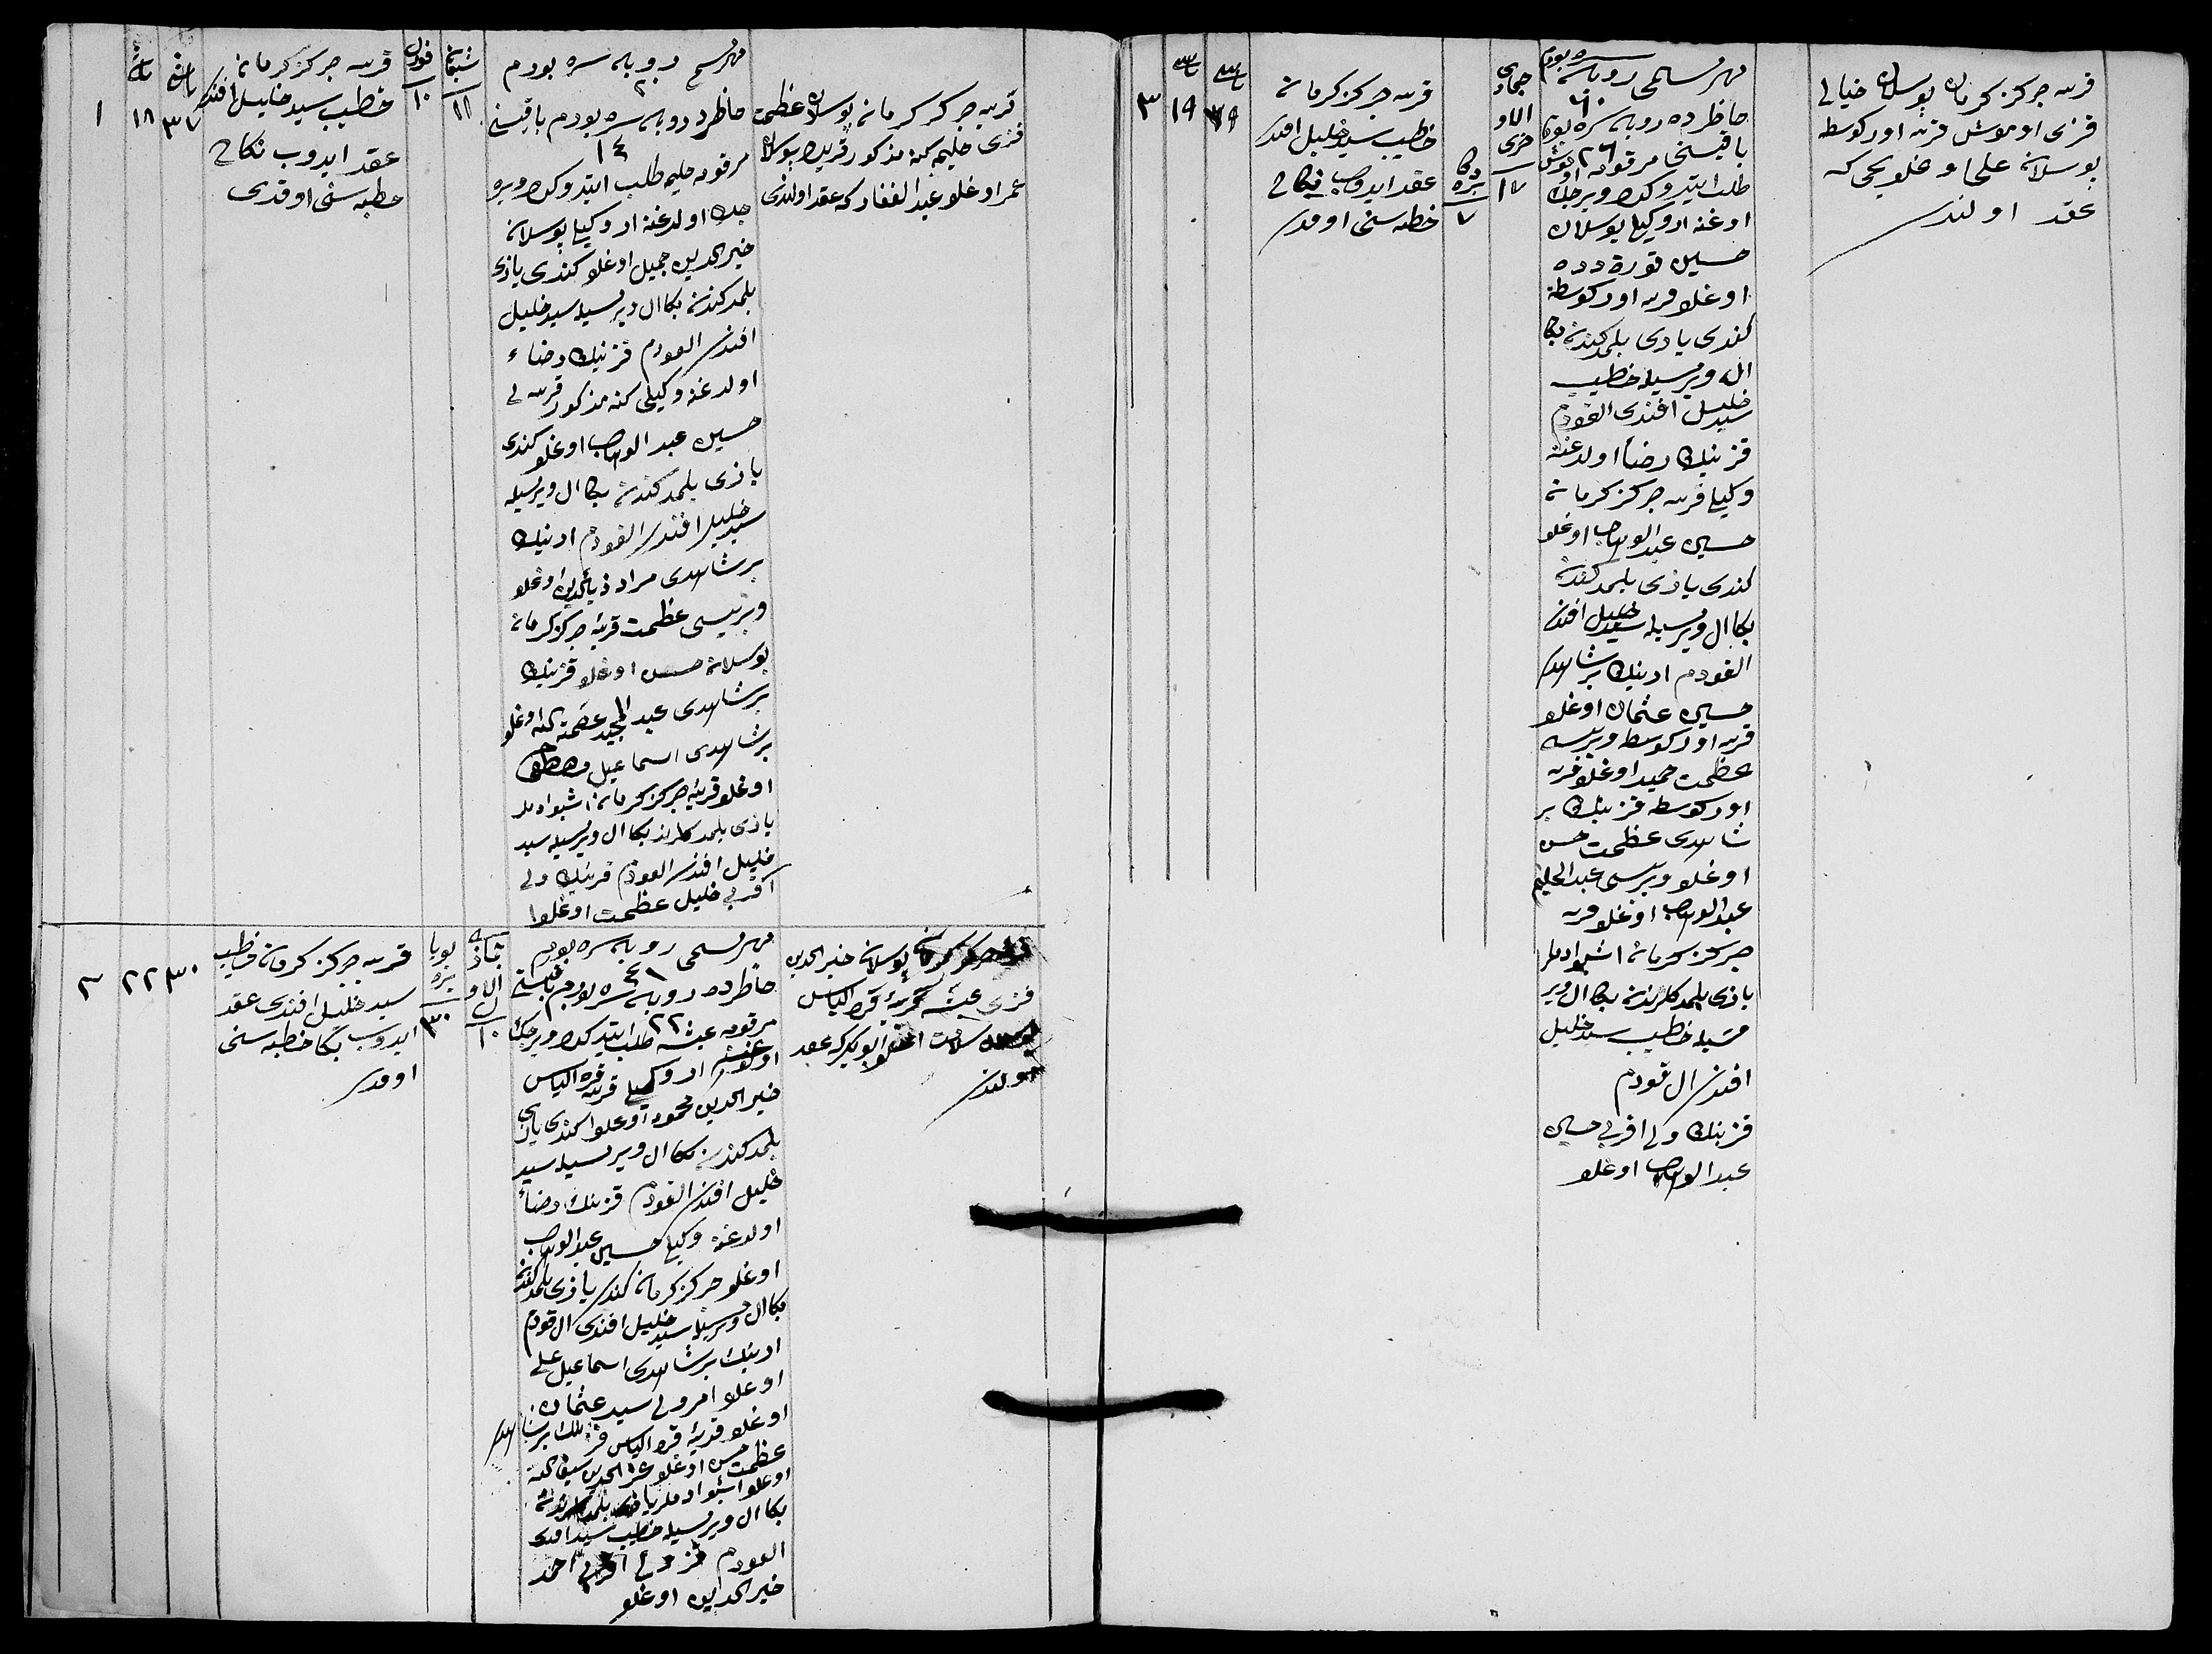 قریه جرکز کرمان پوسلان خیالی
قزی اوموش قریه اورکوسطه
پوسلان علی اوغلو یحیی که
عقد اولندی
مهر مسمی روبله سره بودم
٦٠
حاظرده روبله سره بودم
٢٦
باقیسنی مرقومه اوموش
طلب ایتدوکده ویرجک
اوغنه ار وکیلی پوسلان
حسین توره دده
اوغلو قریه اورکوسطه
کندی یازی بلمد کندن بکا
ال ویرمسیله خطیب
سید خلیل افندی القودم
قزنیک رضا اولدغنه
وکیلی قریه جرکز کرمان
حسین عبد الوهاب اوغلو
کندی یازی بلمد کندن
بکا ال ویرمسیله سید خلیل افندی
القودم ارنیک بر شاهدی
حسین عثمان اوغلو
قریه اورکوسطه ویریسی
عظمت حمید اوغلو قریه
اورکوسطه قزنیک بر
شاهدی عظمت حسن
اوغلو ویریسی عبد الحلیم
عبد الوهاب اوغلو قریه
جرکز کرمان اشبو ادملر
یازی بلمدکلرندن بکا ال ویر
مسیله خطیب سید خلیل
افندی ال قودم
قزنیک ولی اقربی حسین
عبد الوهاب اوغلو
جماد
الاو
خری
١٧
دکا
بره
٧
قریه جرکز کرمان
خطیب سید خلیل افندی
عقد ایدوب نکاح
خطبه سنی اوقدی
یاشی
٣٩
یاشی
١٩
٣
قریه جرکز کرمان پوسلان عظمت
قزی حلیمه که مذکور قریه ده پوسلان
عمر اوغلو عبد الغفار که عقد اولندی
مهر مسمی روبله سره بودم
٢٠
حاظرده روبله سره بودم باقیسنی
١٤
مرقومه حلیمه طلب ایتدوکده ویره
جک اولدغنه ار وکیلی پوسلان
خیر الدین جمیل اوغلو کندی یازی
بلمد کندن بکا ال ویرمسیله سید خلیل
افندی القودم قزنیک رضاء
اولدغنه وکیلی کنه مذکور قریه لی
حسین عبد الوهاب اوغلو کندی
یازی بلمد کندن بکا ال ویرمسیله
سید خلیل افندی القودم ارنیک
بر شاهدی مراد ذیاالدین اوغلو
ویریسی عظمت قریه جرکز کرمان
پوسلان حسن اوغلو قزنیک
بر شاهدی عبد المجید عصمة الله اوغلو
بر شاهدی اسماعیل مصطفی
اوغلو قریه جرکز کرمان اشبو ادملر
یازی بلمدکلرندن بکا ال ویرمسیله سید
خلیل افندی القودم قزنیک ولی
اقربی خلیل عظمت اوغلو
شعبان
١١
فورل
١٠
قریه جرکز کرمان
خطیب سید خلیل افندی
عقد ایدوب نکاح
خطبه سنی اوقدی
یاشی
٣٧
یاشی
١٨
١
قریه جرکز کرمان پوسلان خیر الدین
قزی عیشه که قریه قره الیاس
پوسلان سلامت اوغلو ابوبکر که عقد
اولندی
مهر مسمی روبله سره بودم
٤١
حاظرده روبله سره بودم باقیسنی
٢٢
مرقومه عیشه طلب ایتدکده ویرجک
اولدغنه ار وکیلی قریه قره الیاس
خیر الدین محمود اوغلو کندی یازی
بلمد کندن بکا ال ویرمسیله سید
خلیل افندی القودم قزنیک رضاء
اولدغنه وکیلی حسین عبد الوهاب
اوغلو جرکز کرمان کندی یازی بلمد کندن
بکا ال ویرمسیله سید خلیل افندی ال قودم
ارنیک بر شاهدی اسماعیل علی
اوغلو امرولی سید عثمان
اوغلو قریه قره الیاس قزنیک بر شاهدی
عظمت حسن اوغلو عز الدین سیف الله
اوغلو اشبو ادملر یازی بلمدکلرندن
بکا ال ویرمسیله خطیب سید افندی
القودم قز ولی اقربی احمد
خیر الدین اوغلو
الاول
١٠
یویا
بره
٣٠
قریه جرکز کرمان خطیب
سید خلیل افندی عقد
ایدوب نکاح خطبه سنی
اوقدی
٣٠
٢٢
٢